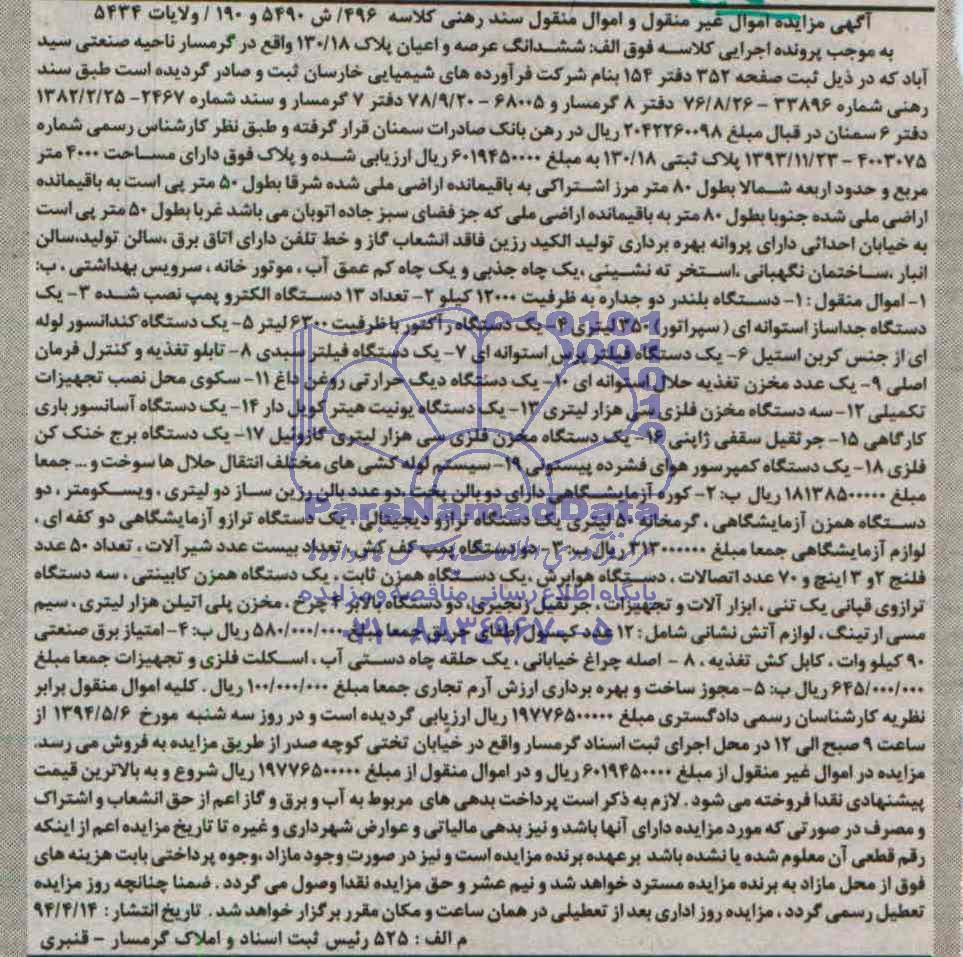 آگهی مزایده اموال غیر منقول و اموال منقول سند رهنی کلاسه ۴۹۶/ ش ۵۴۹۰ و ۱۹۰ / ولایات ۵۴۳۴
به موجب پرونده اجرایی کلاسه فوق الف: ششدانگ عرصه و اعیان پلاک ۱۳۰/۱۸ واقع در گرمسار ناحیه صنعتی سید
آباد که در ذیل ثبت صفحه ۳۵۲ دفتر ۱۵۴ بنام شرکت فرآورده های شیمیایی خارسان ثبت و صادر گردیده است طبق سند
رهنی شماره ۳۳۸۹۶ - ۷۶/۸/۲۶ دفتر ۸ گرمسار و ۶۸۰۰۵ - ۷۸/۹/۲۰ دفتر ۷ گرمسار و سند شماره ۲۴۶۷- ۱۳۸۲/۲/۲۵
دفتر ۶ سمنان در قبال مبلغ ۲۰۴۲۲۶۰۰۹۸ ریال در رهن بانک صادرات سمنان قرار گرفته و طبق نظر کارشناس رسمی شماره
۴۰۰۳۰۷۵ - ۱۳۹۳/۱۱/۲۳ پلاک ثبتی ۱۳۰/۱۸ به مبلغ ۶۰۱۹۴۵۰۰۰۰ ریال ارزیابی شده و پلاک فوق دارای مساحت ۴۰۰۰ متر
مربع و حدود اربعه شمالا بطول ۸۰ متر مرز اشتراکی به باقیمانده اراضی ملی شده شرقا بطول ۵۰ متر پی است به باقیمانده
اراضی ملی شده جنوبا بطول ۸۰ متر به باقیمانده اراضی ملی که جز فضای سبز جاده اتوبان می باشد غربا بطول ۵۰ متر پی است
به خیابان احداثی دارای پروانه بهره برداری تولید الکید رزین فاقد انشعاب گاز و خط تلفن دارای اتاق برق ،سالن تولید،سالن
انبار ،ساختمان نگهبانی ،استخر ته نشینی ،یک چاه جذبی و یک چاه کم عمق آب ، موتور خانه ، سرویس بهداشتی . ب:
۱- اموال منقول : ۱- دستگاه بلندر دو جداره به ظرفیت ۱۲۰۰۰ کیلو ۲- تعداد ۱۳ دستگاه الکترو پمپ نصب شده ۳- یک
دستگاه جداساز استوانه ای ( سپراتور) ۳۵۰ لیتری ۴- یک دستگاه رآکتور با ظرفیت ۶۳۰۰ لیتر ۵- یک دستگاه کندانسور لوله
ای از جنس کربن استیل ۶- یک دستگاه فیلتر پرس استوانه ای ۷- یک دستگاه فیلتر سبدی ۸- تابلو تغذیه و کنترل فرمان
اصلی ۹- یک عدد مخزن تغذیه حلال استوانه ای ۱۰- یک دستگاه دیگ حرارتی روغن داغ ۱۱- سکوی محل نصب تجهیزات
تکمیلی ۱۲- سه دستگاه مخزن فلزی سی هزار لیتری ۱۳- یک دستگاه یونیت هیتر کویل دار ۱۴- یک دستگاه آسانسور باری
کارگاهی ۱۵- جرثقیل سقفی ژاپنی ۱۶- یک دستگاه مخزن فلزی سی هزار لیتری گازوئیل ۱۷- یک دستگاه برج خنک کن
فلزی ۱۸- یک دستگاه کمپرسور هوای فشرده پیستونی ۱۹- سیستم لوله کشی های مختلف انتقال حلال ها سوخت و ... جمعا
مبلغ ۱۸۱۳۸۵۰۰۰۰۰ ریال ب: ۲- کوره آزمایشگاهی دارای دو بالن پخت ،دو عدد بالن رزین ساز دو لیتری ، ویسکومتر ، دو
دستگاه همزن آزمایشگاهی ، گرمخانه ۵۰ لیتری یک دستگاه ترازو دیجیتالی ، یک دستگاه ترازو آزمایشگاهی دو کفه ای ،
لوازم آزمایشگاهی جمعا مبلغ ۳۱۳۰۰۰۰۰۰ ریال ب: ۳- دو دستگاه پمپ کف کش ، تعداد بیست عدد شیر آلات . تعداد ۵۰ عدد
فلنج ۲و ۳ اینچ و ۷۰ عدد اتصالات ، دستگاه هوابرش ،یک دستگاه همزن ثابت ، یک دستگاه همزن کابینتی ، سه دستگاه
ترازوی قپانی یک تنی ، ابزار آلات و تجهیزات ، جرثقیل زنجیری، دو دستگاه بالابر ۴ چرخ ، مخزن پلی اتیلن هزار لیتری ، سیم
مسی ارتینگ ، لوازم آتش نشانی شامل : ۱۲ عدد کپسول اطفای حریق جمعا مبلغ ۵۸۰/۰۰۰/۰۰۰ ریال ب: ۴- امتیاز برق صنعتی
۹۰ کیلو وات ، کابل کش تغذیه ، ۸ - اصله چراغ خیابانی ، یک حلقه چاه دستی آب ، اسکلت فلزی و تجهیزات جمعا مبلغ
۶۴۵/۰۰۰/۰۰۰ ریال ب: ۵- مجوز ساخت و بهره برداری ارزش آرم تجاری جمعا مبلغ ۱۰۰/۰۰۰/۰۰۰ ریال . کلیه اموال منقول برابر
نظریه کارشناسان رسمی دادگستری مبلغ ۱۹۷۷۶۵۰۰۰۰۰ ریال ارزیابی گردیده است و در روز سه شنبه مورخ ۱۳۹۴/۵/۶ از
ساعت ۹ صبح الی ۱۲ در محل اجرای ثبت اسناد گرمسار واقع در خیابان تختی کوچه صدر از طریق مزایده به فروش می رسد.
مزایده در اموال غیر منقول از مبلغ ۶۰۱۹۴۵۰۰۰۰ ریال و در اموال منقول از مبلغ ۱۹۷۷۶۵۰۰۰۰۰ ریال شروع و به بالاترین قیمت
پیشنهادی نقدا فروخته می شود . لازم به ذکر است پرداخت بدهی های مربوط به آب و برق و گاز اعم از حق انشعاب و اشتراک
و مصرف در صورتی که مورد مزایده دارای آنها باشد و نیز بدهی مالیاتی و عوارض شهرداری و غیره تا تاریخ مزایده اعم از اینکه
رقم قطعی آن معلوم شده یا نشده باشد برعهده برنده مزایده است و نیز در صورت وجود مازاد ،وجوه پرداختی بابت هزینه های
فوق از محل مازاد به برنده مزایده مسترد خواهد شد و نیم عشر و حق مزایده نقدا وصول می گردد . ضمنا چنانچه روز مزایده
تعطیل رسمی گردد ، مزایده روز اداری بعد از تعطیلی در همان ساعت و مکان مقرر برگزار خواهد شد . تاریخ انتشار : ۹۴/۴/۱۴
م الف : ۵۲۵ رئیس ثبت اسناد و املاک گرمسار - قنبری
ParsNamadData
پایگاه اطلاع رسانی مناقصه و مزایده
۰۲۱-۸۸۳۴۹۶۷۰-۵